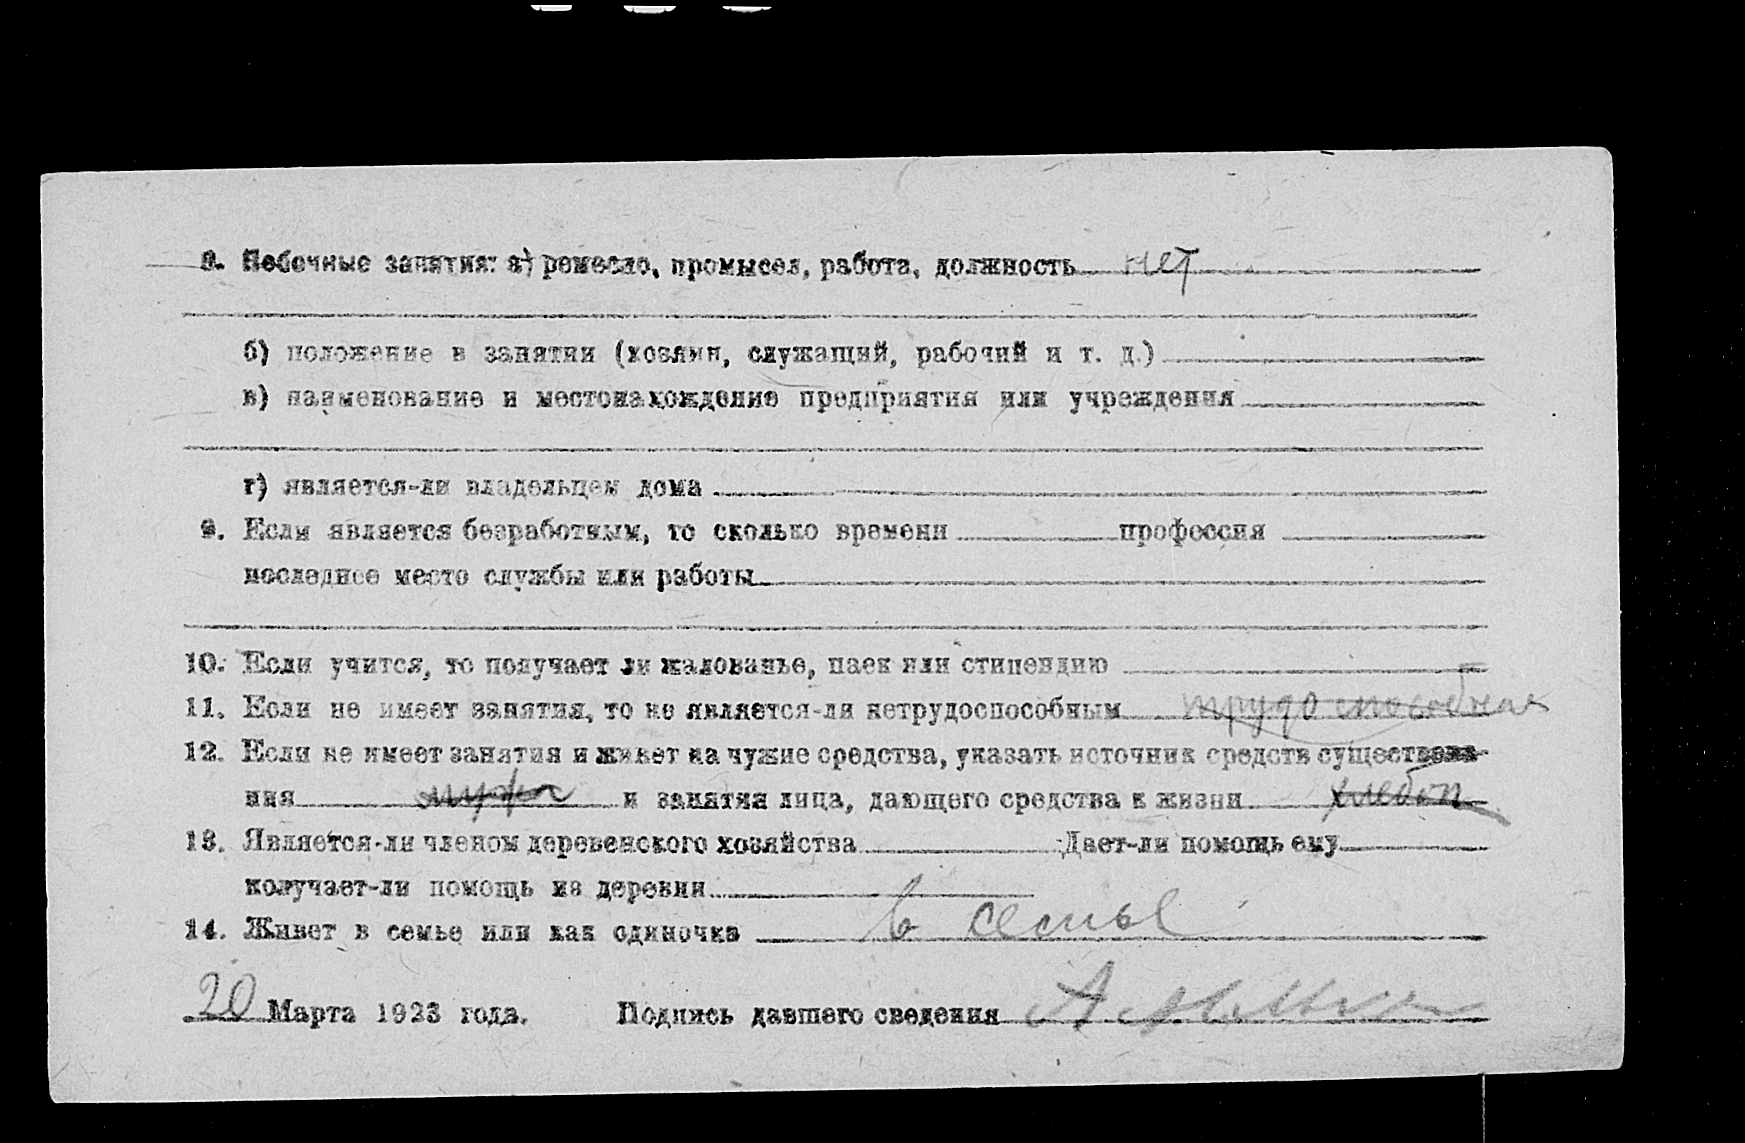 8. Побочные занятия: а) ремесло, промысел, работа, должность нет
б) положение в занятии (хозяин, служащий, рабочий и т. д.)
в) наименование и местонахождение предприятия или учреждения
г) является-ли владельцем дома
9. Если является безработным, то сколько времени профессия
последнее место службы или работы
10. Если учится, то получает ли жалованье, паек или стипендию
11. Если не имеет занятия, то не является-ли нетрудоспособным трудоспособная
12. Если не имеет занятия и живет на чужие средства, указать источник средств существова-
ния мужа и занятия лица, дающего средства к жизни хлебоп
13. Является-ли членом деревенского хозяйства Дает-ли помощь ему
получает-ли помощь из деревни
14. Живет в семье или как одиночка в семье
20 Марта 1923 года. Подпись давшего сведения